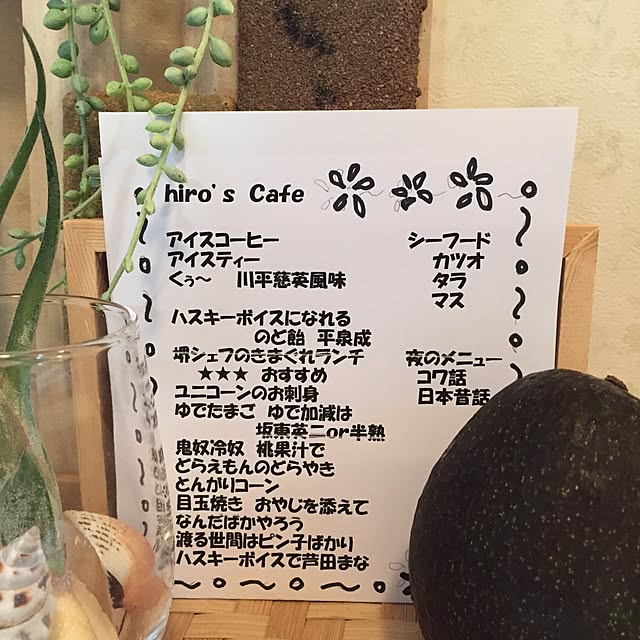 hiro's Cafe
アイスコーヒー
アイスティー
くぅ〜 川平慈英風味
ハスキーボイスになれる
のど飴 平泉成
堺シェフのきまぐれランチ
★★★ おすすめ
ユニコーンのお刺身
ゆでたまご ゆで加減は
坂東英二or半熟
鬼奴冷奴 桃果汁で
どらえもんのどらやき
とんがりコーン
目玉焼き おやじを添えて
なんだばかやろう
渡る世間はピン子ばかり
ハスキーボイスで芦田まな
シーフード
カツオ
タラ
マス
夜のメニュー
コワ話
日本昔話